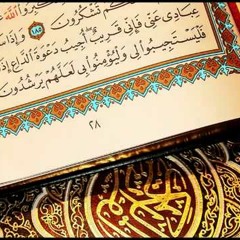 تَشْكُرُونَ ١٨٥ وَإِذَا سَ
عِبَادِي عَنِّي فَإِنِّي قَرِيبٌ أُجِيبُ دَعْوَةَ الدَّاعِ إِذَا
فَلْيَسْتَجِيبُوا لِي وَلْيُؤْمِنُوا بِي لَعَلَّهُمْ يَرْشُدُونَ
٢٨